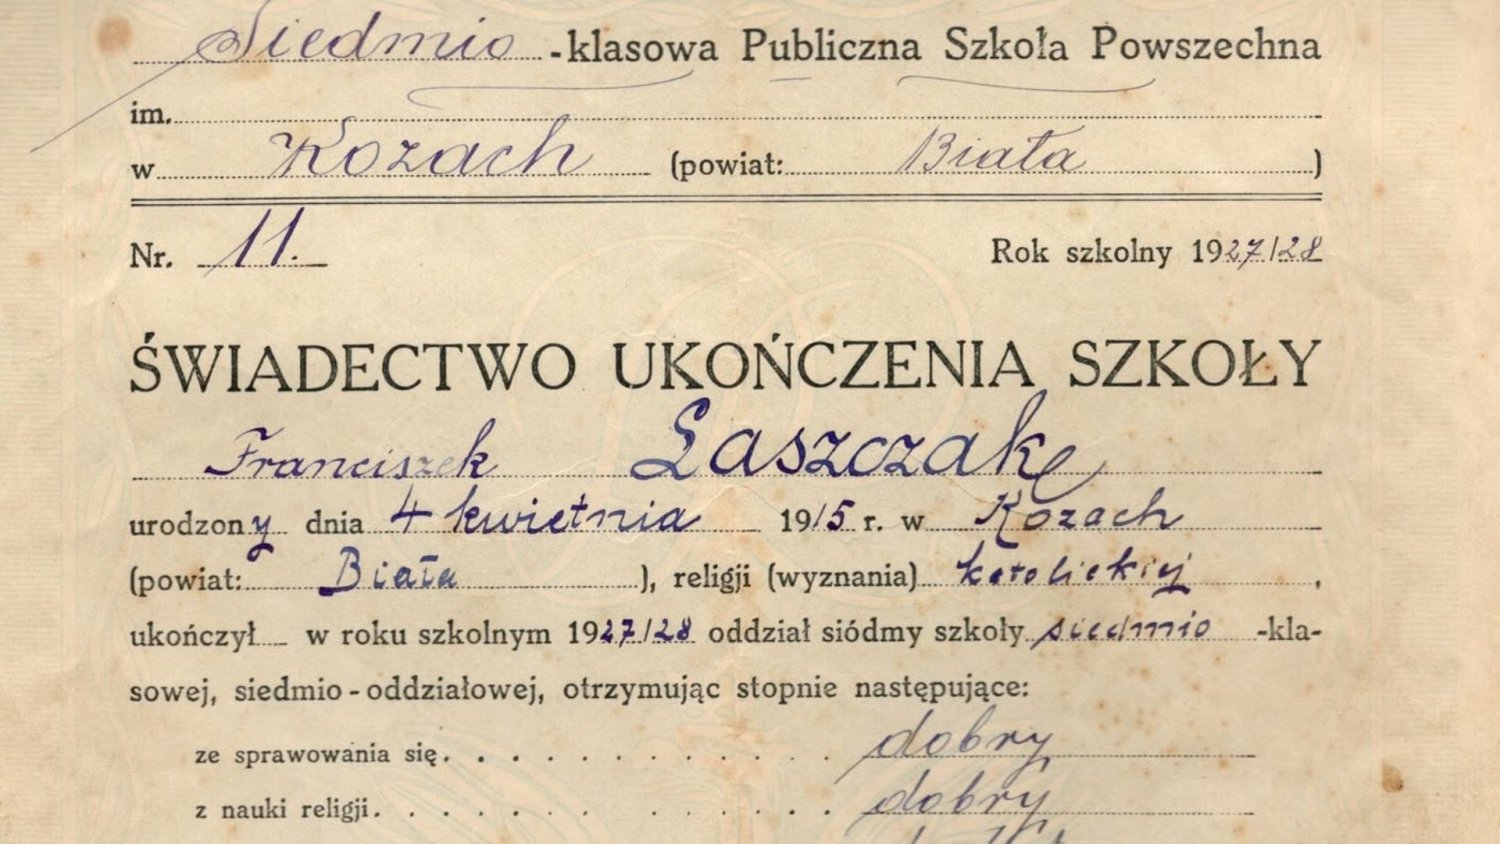 Siedmio -klasowa Publiczna Szkoła Powszechna
im.
w Kozach (powiat: Biała)
Nr. 11. Rok szkolny 1927/28
ŚWIADECTWO UKOŃCZENIA SZKOŁY
Franciszek Łaszczak
urodzony dnia 4 kwietnia 1915 r. w Kozach
(powiat: Biała), religji (wyznania) katolickiej,
ukończył w roku szkolnym 1927/28 oddział siódmy szkoły siedmio -kla-
sowej, siedmio-oddziałowej, otrzymując stopnie następujące:
ze sprawowania się. . . . . . . . . . . dobry
z nauki religji. . . . . . . . . . . dobry